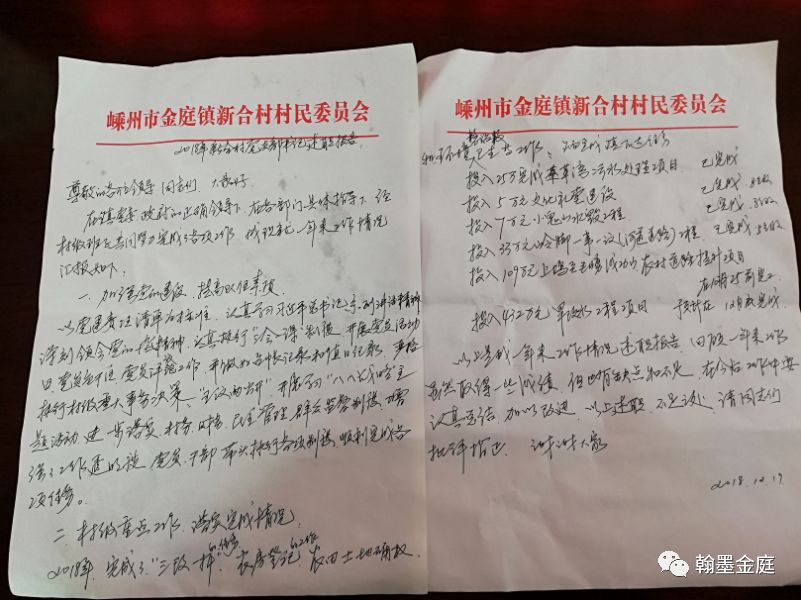 嵊州市金庭镇新合村村民委员会
2018年新合村党支部书记述职报告
尊敬的各位领导 同志们 大家好
在镇党委政府的正确领导下,在各部门具体指导下,经
村级班子共同努力完成了各项工作,我现在一年来工作情况
汇报如下:
一、加强党的建设,提高政治素质
以党建责任清单为标准,认真学习习近平总书记系列讲话精神
深刻领会党的精神,认真执行"三会一课"制度,开展党员活动
日 党员 党员 工作,并做好台帐记录和值日记录,严格
执行村级重大事务决策,"五议两公开",开展学习"八八战略"主
题活动 进一步落实,村务、财务、民主管理,群众监督制度,增
强工作透明度 党员、干部带头执行各项制度,顺利完成各
项任务。
二、村级重点工作,落实完成情况
2018年,完成了"三改一拆"的任务 农房登记的工作 农田土地确权
嵊州市金庭镇新合村村民委员会
环境整治及卫生等工作,完成镇下达任务
投入25万完成 湾污水处理项目 已完成
投入5万文化礼堂建设 已完成
投入7万小 山水毁工程 已完成
投入33万 脚一事一议(河道 )工程 已完成
投入109万上 农村 项目
在 前完工
投入432万 饮水工程项目 预计在12月底完成
以上是我一年来工作情况述职报告,回顾一年来工作
虽然取得一些成绩,但也有缺点和不足,在今后工作中要
认真总结,加以改进,以上述职,不足之处,请同志们
批评指正 谢谢大家
2018.12.19
翰墨金庭